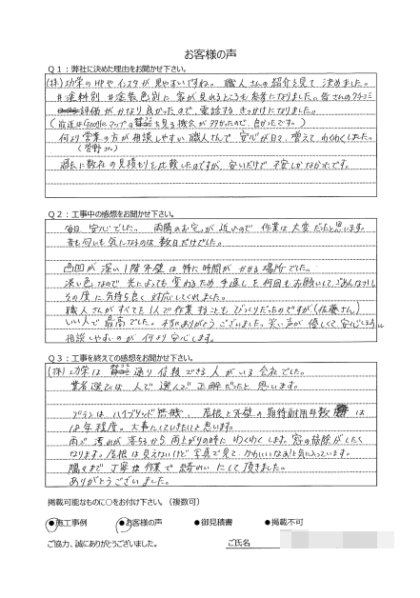 お客様の声
Q1：弊社に決めた理由をお聞かせ下さい。
(株)功栄のHPやインスタが見やすいですね。職人さんの紹介を見て決めました。
#塗料別 #塗装色別に家が見れるところも参考になりました。皆さんのクチコミ
評価がかなり良かったので、電話するきっかけになりました。
(最近はGoogleマップの を見る機会が多かったので、良かったです。)
何より営業の方が相談しやすい職人さんで安心が日々、増えてわくわくしました。
(菅野さん)
過去に数社の見積もりを比較したのですが、安いだけで不安しかなかったです。
Q2：工事中の感想をお聞かせ下さい。
毎日、安心でした。両隣のお宅が近いので作業は大変だったと思います。
音も匂いも気になるのは数日だけでした。
凹凸が深い1階外壁は特に時間がかかる場所でした。
淡い色なので光によっても変わるため手直しも何回もお願いしてごめんなさい。
その度に気持ち良く対応してくれました。
職人さんがすべて1人で作業することも、びっくりだったのですが(佐藤さん)
いい人で最高でした。本当にありがとうございました。笑い声が優しくて安心できるし
相談しやすいのが何より安心します。
Q3：工事を終えての感想をお聞かせ下さい。
(株)功栄は 通り信頼できる人がいる会社でした。
業者選びは人で選んで正解だったと思います。
プランはハイブリッド無機、屋根と外壁の期待耐用年数は
18年程度。大事にしていきたいと思います。
雨で汚れが落ちるから雨上がりの時にわくわくします。窓の掃除がしたく
なります。屋根は見えないけど写真で見て、かわいいなぁと気に入っています。
隅々まで丁寧な作業で綺麗にして頂きました。
ありがとうございました。
掲載可能なものに○をお付け下さい。（複数可）
●施工事例 ●お客様の声 ●御見積書 ●掲載不可
ご協力、誠にありがとうございました。 ご氏名